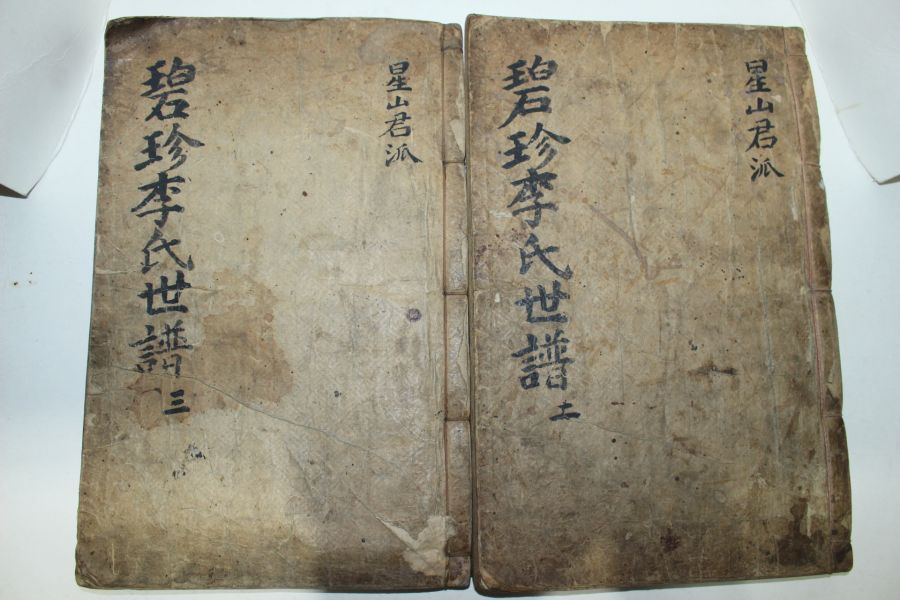 星山君派
碧珍李氏世譜
星山君派
碧珍李氏世譜 三